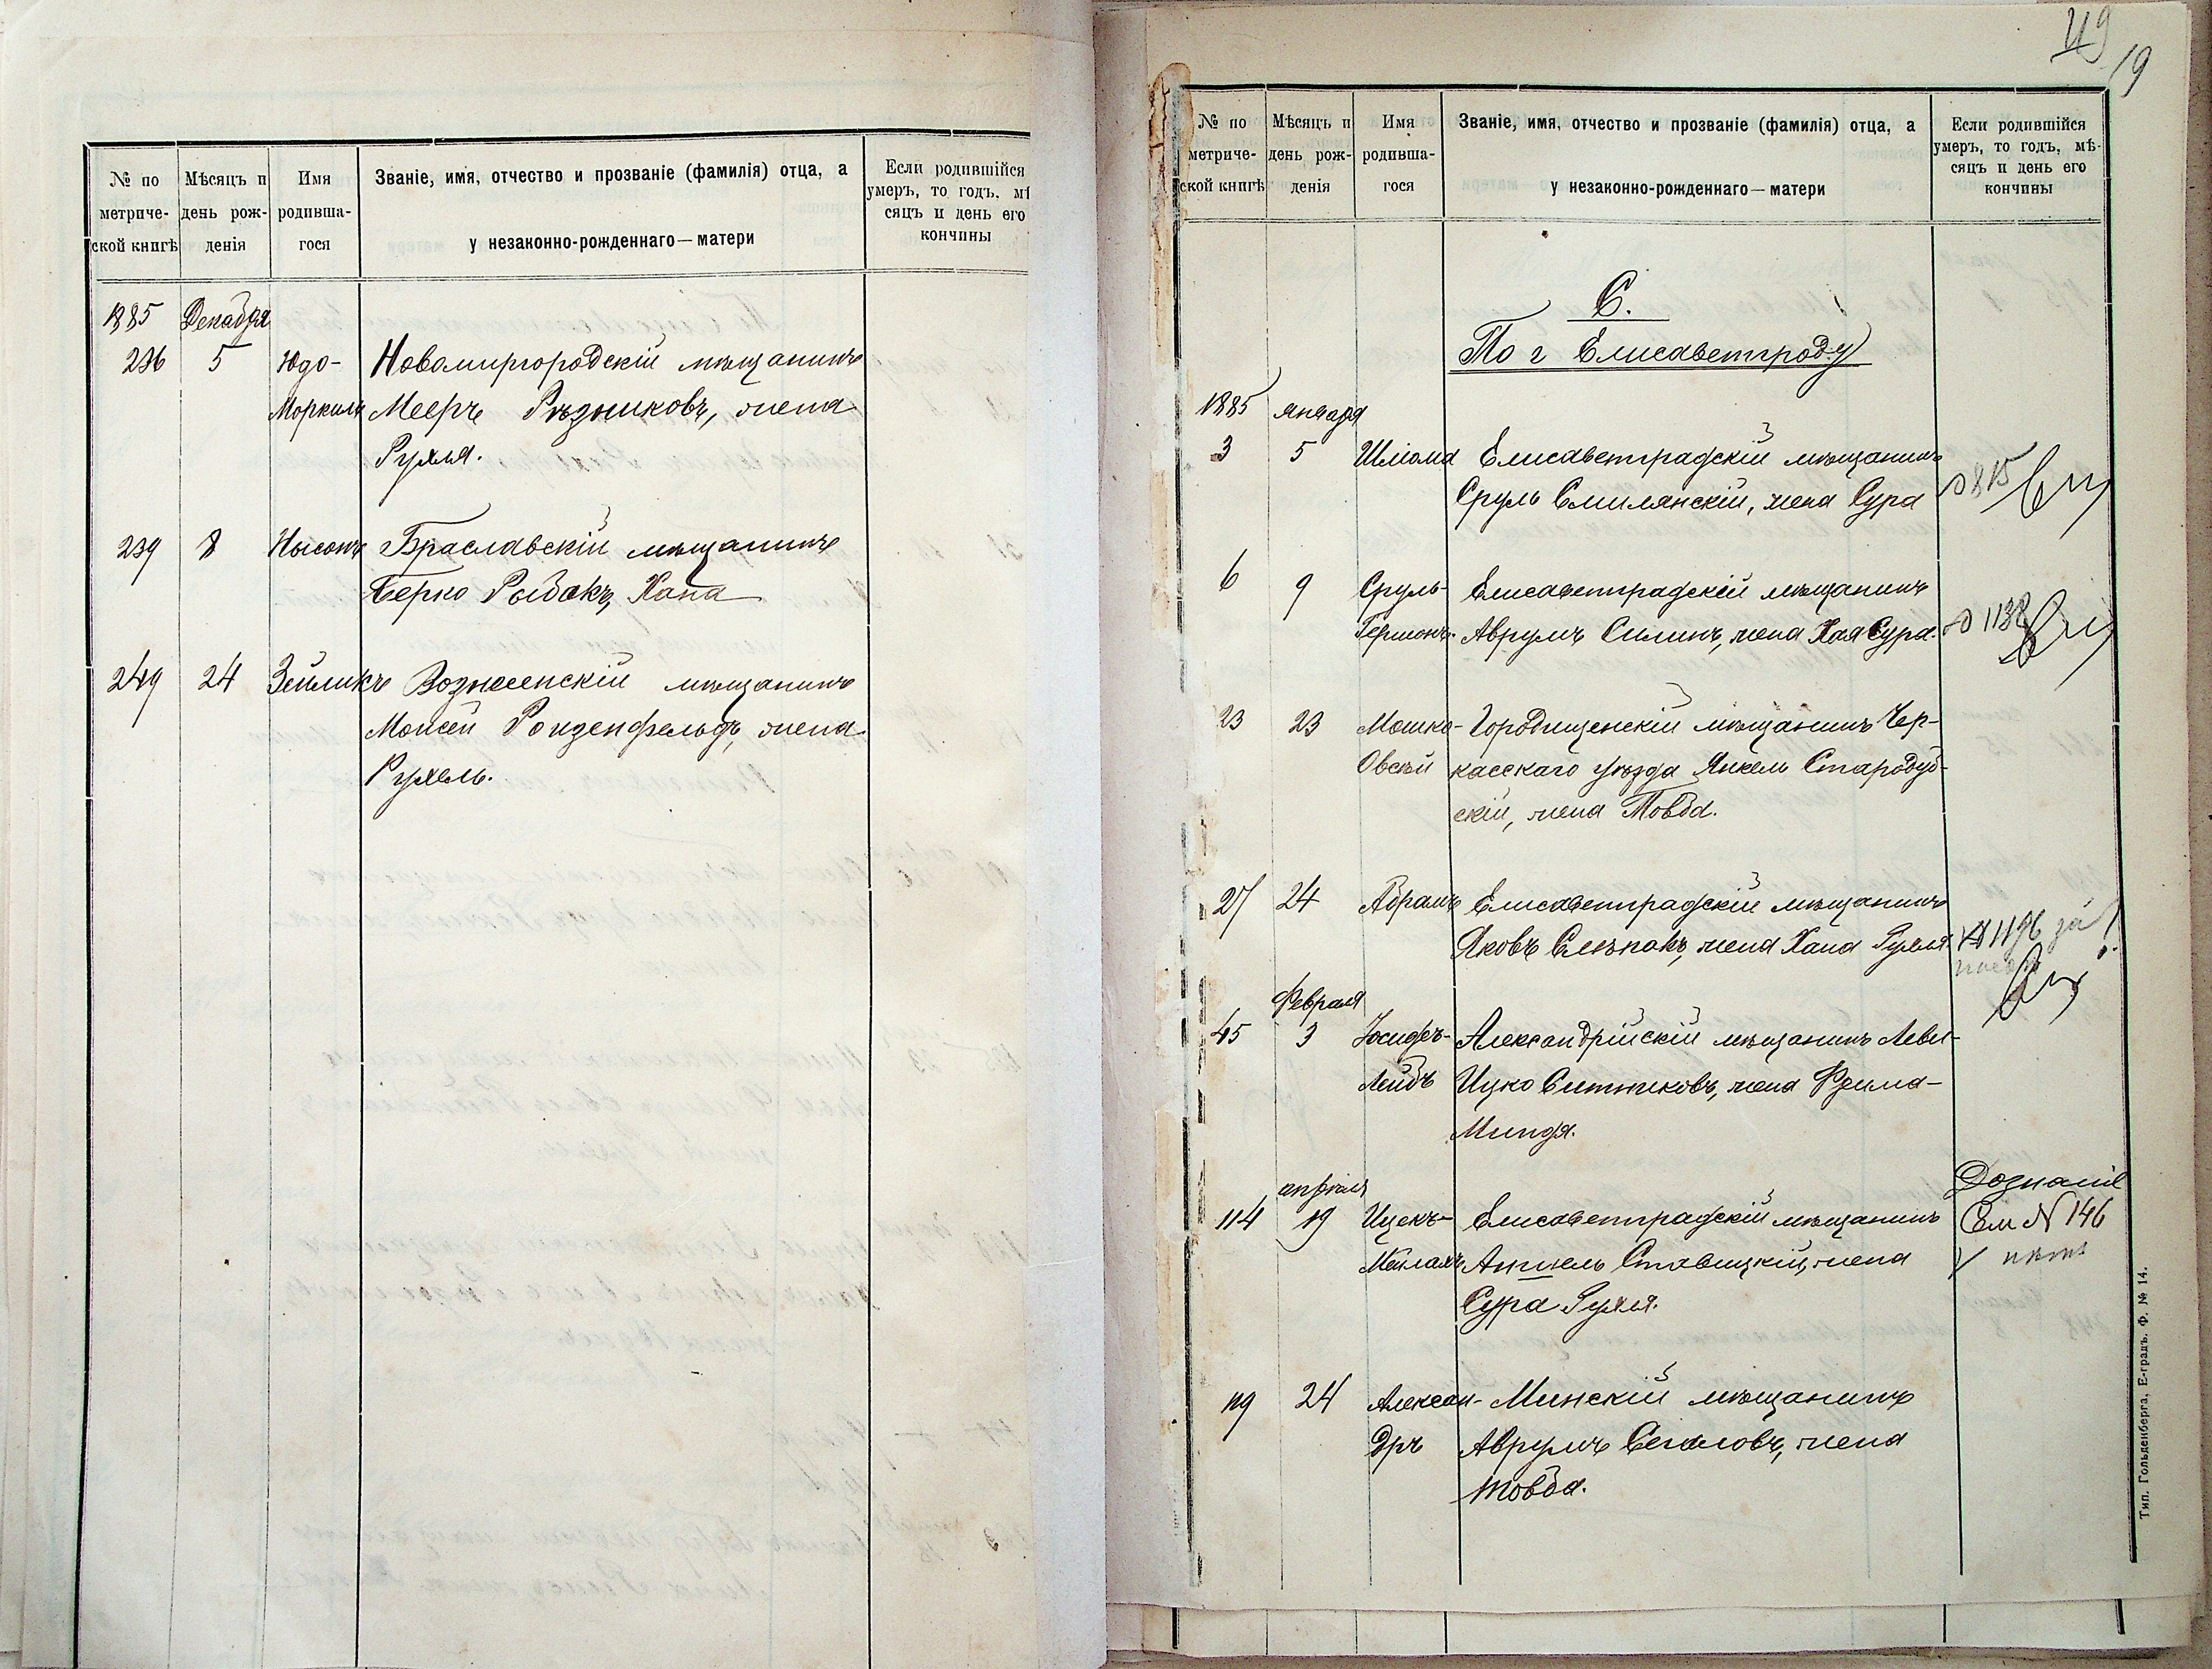 № по метриче-ской книгѣ
Мѣсяцъ и день рож-денія
Имя родивша-гося
Званіе, имя, отчество и прозваніе (фамилія) отца, а у незаконно-рожденнаго—матери
Если родившійся умеръ, то годъ, мѣ сяцъ и день его кончины
1885 Декабря
236 5 Юдо- Новомиргородскій мѣщанинъ
Моркиль Мееръ Рѣзниковъ, жена
Рухля.
239 8 Нысонъ Браславскій мѣщанинъ
Берко Рыбакъ, Хана
249 24 Зейликъ Вознесенскій мѣщанинъ
Моисей Розенфельдъ, жена
Рухель.
49
19
№ по метриче-ской книгѣ
Мѣсяцъ и день рож-денія
Имя родивша-гося
Званіе, имя, отчество и прозваніе (фамилія) отца, а у незаконно-рожденнаго—матери
Если родившійся умеръ, то годъ, мѣ-сяцъ и день его кончины
С.
По г Елисаветграду
1885 января
3 5 Шліома Елисаветградскій мѣщанинъ
Сруль Смилянскій, жена Сура
815
6 9 Сруль- Елисаветградскій мѣщанинъ
Гершонъ. Аврумъ Силинъ, жена Хая Сура.
1138
23 23 Мошко- Городищенскій мѣщанинъ Чер-
Овсѣй касскаго уѣзда Янкель Стародуб-
скій, жена Товба.
27 24 Абрамъ Елисаветградскій мѣщанинъ
Яковъ Слѣпакъ, жена Хана Рухля
1176 за
Февраля
45 3 Іосифъ- Александрійскій мѣщанинъ Леви-
Лейбъ Ицко Ситниковъ, жена Фрима-
Миндя.
апрѣля
114 19 Ицекъ- Елисаветградскій мѣщанинъ
Мейлахъ Аншель Ставицкій, жена
Сура Рухля.
Дознаніе
См № 146
119 24 Алексан- Минскій мѣщанинъ
дръ Аврумъ Сегаловъ, жена
Товба.
Тип. Гольденберга, Е-градъ. Ф. № 14.